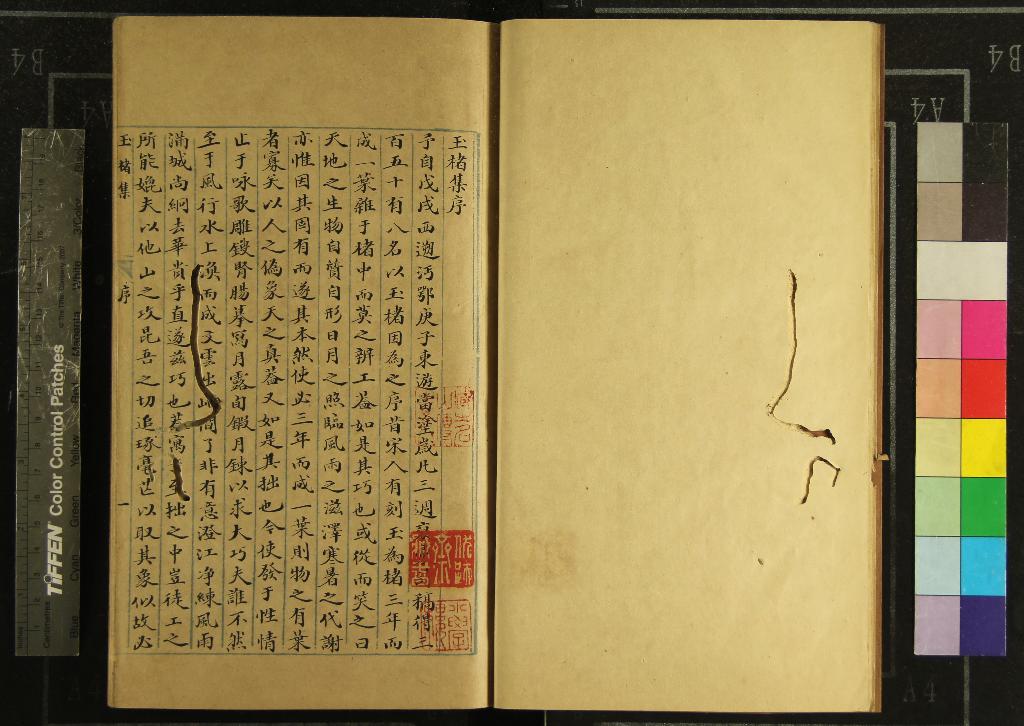 玉楮集序
予自戊戌西遡沔鄂庚子東遊當塗歲凡三週裒 稿得三
百五十有八名以玉楮因為之序昔宋人有刻玉為楮三年而
成一葉雜于楮中而莫之辨工葢如是其巧也或從而笑之曰
天地之生物自質自形日月之照臨風雨之滋澤寒暑之代謝
亦惟因其固有而遂其本然使必三年而成一葉則物之有葉
者寡矣以人之偽象天之真葢又如是其拙也今使發于性情
止于咏歌雕鎪腎腸摹寫月露旬鍛月鍊以求大巧夫誰不然
至于風行水上渙而成文雲出 間了非有意澄江净練風雨
滿城尚絅去華貴乎直遂茲巧也 寓 至拙之中豈徒工之
所能媲夫以他山之攻昆吾之切追琢毫芒以取其象似故必
玉楮集
序
一
TIFFEN Color Control Patches
Blue
Cyan
Green
Yellow
Red
Magenta
White
Centimetres
B4
A4
B4
A4
A4